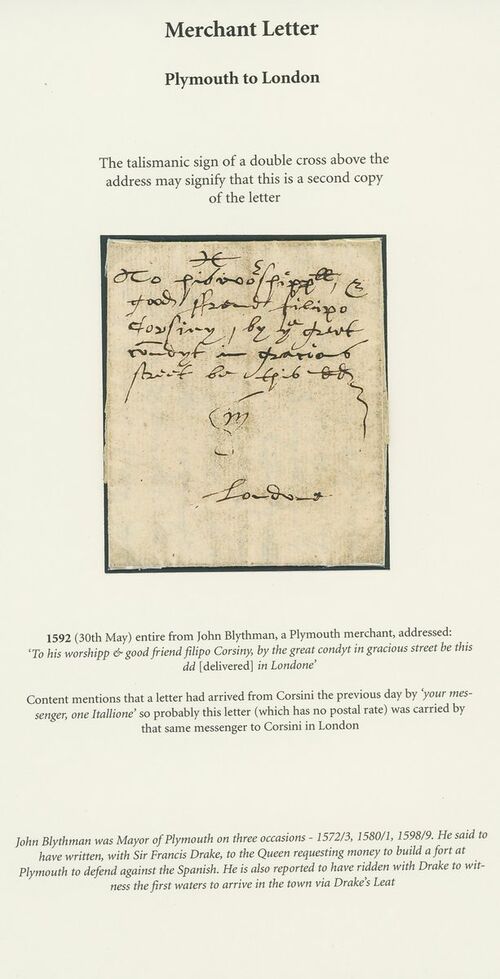 Merchant Letter
Plymouth to London
The talismanic sign of a double cross above the
address may signify that this is a second copy
of the letter
To his worshippll, &
good ffrend filipo
Corsiny, by ye great
condyt in gracious
street be this dd
in
Londone
1592 (30th May) entire from John Blythman, a Plymouth merchant, addressed:
‘To his worshipp & good friend filipo Corsiny, by the great condyt in gracious street be this
dd [delivered] in Londone’
Content mentions that a letter had arrived from Corsini the previous day by ‘your mes-
senger, one Itallione’ so probably this letter (which has no postal rate) was carried by
that same messenger to Corsini in London
John Blythman was Mayor of Plymouth on three occasions - 1572/3, 1580/1, 1598/9. He said to
have written, with Sir Francis Drake, to the Queen requesting money to build a fort at
Plymouth to defend against the Spanish. He is also reported to have ridden with Drake to wit-
ness the first waters to arrive in the town via Drake’s Leat